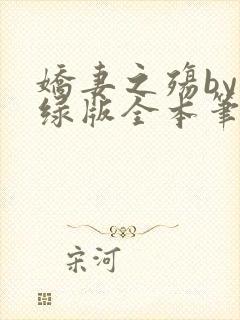 娇妻之殇by
绿版全本筆
宋河